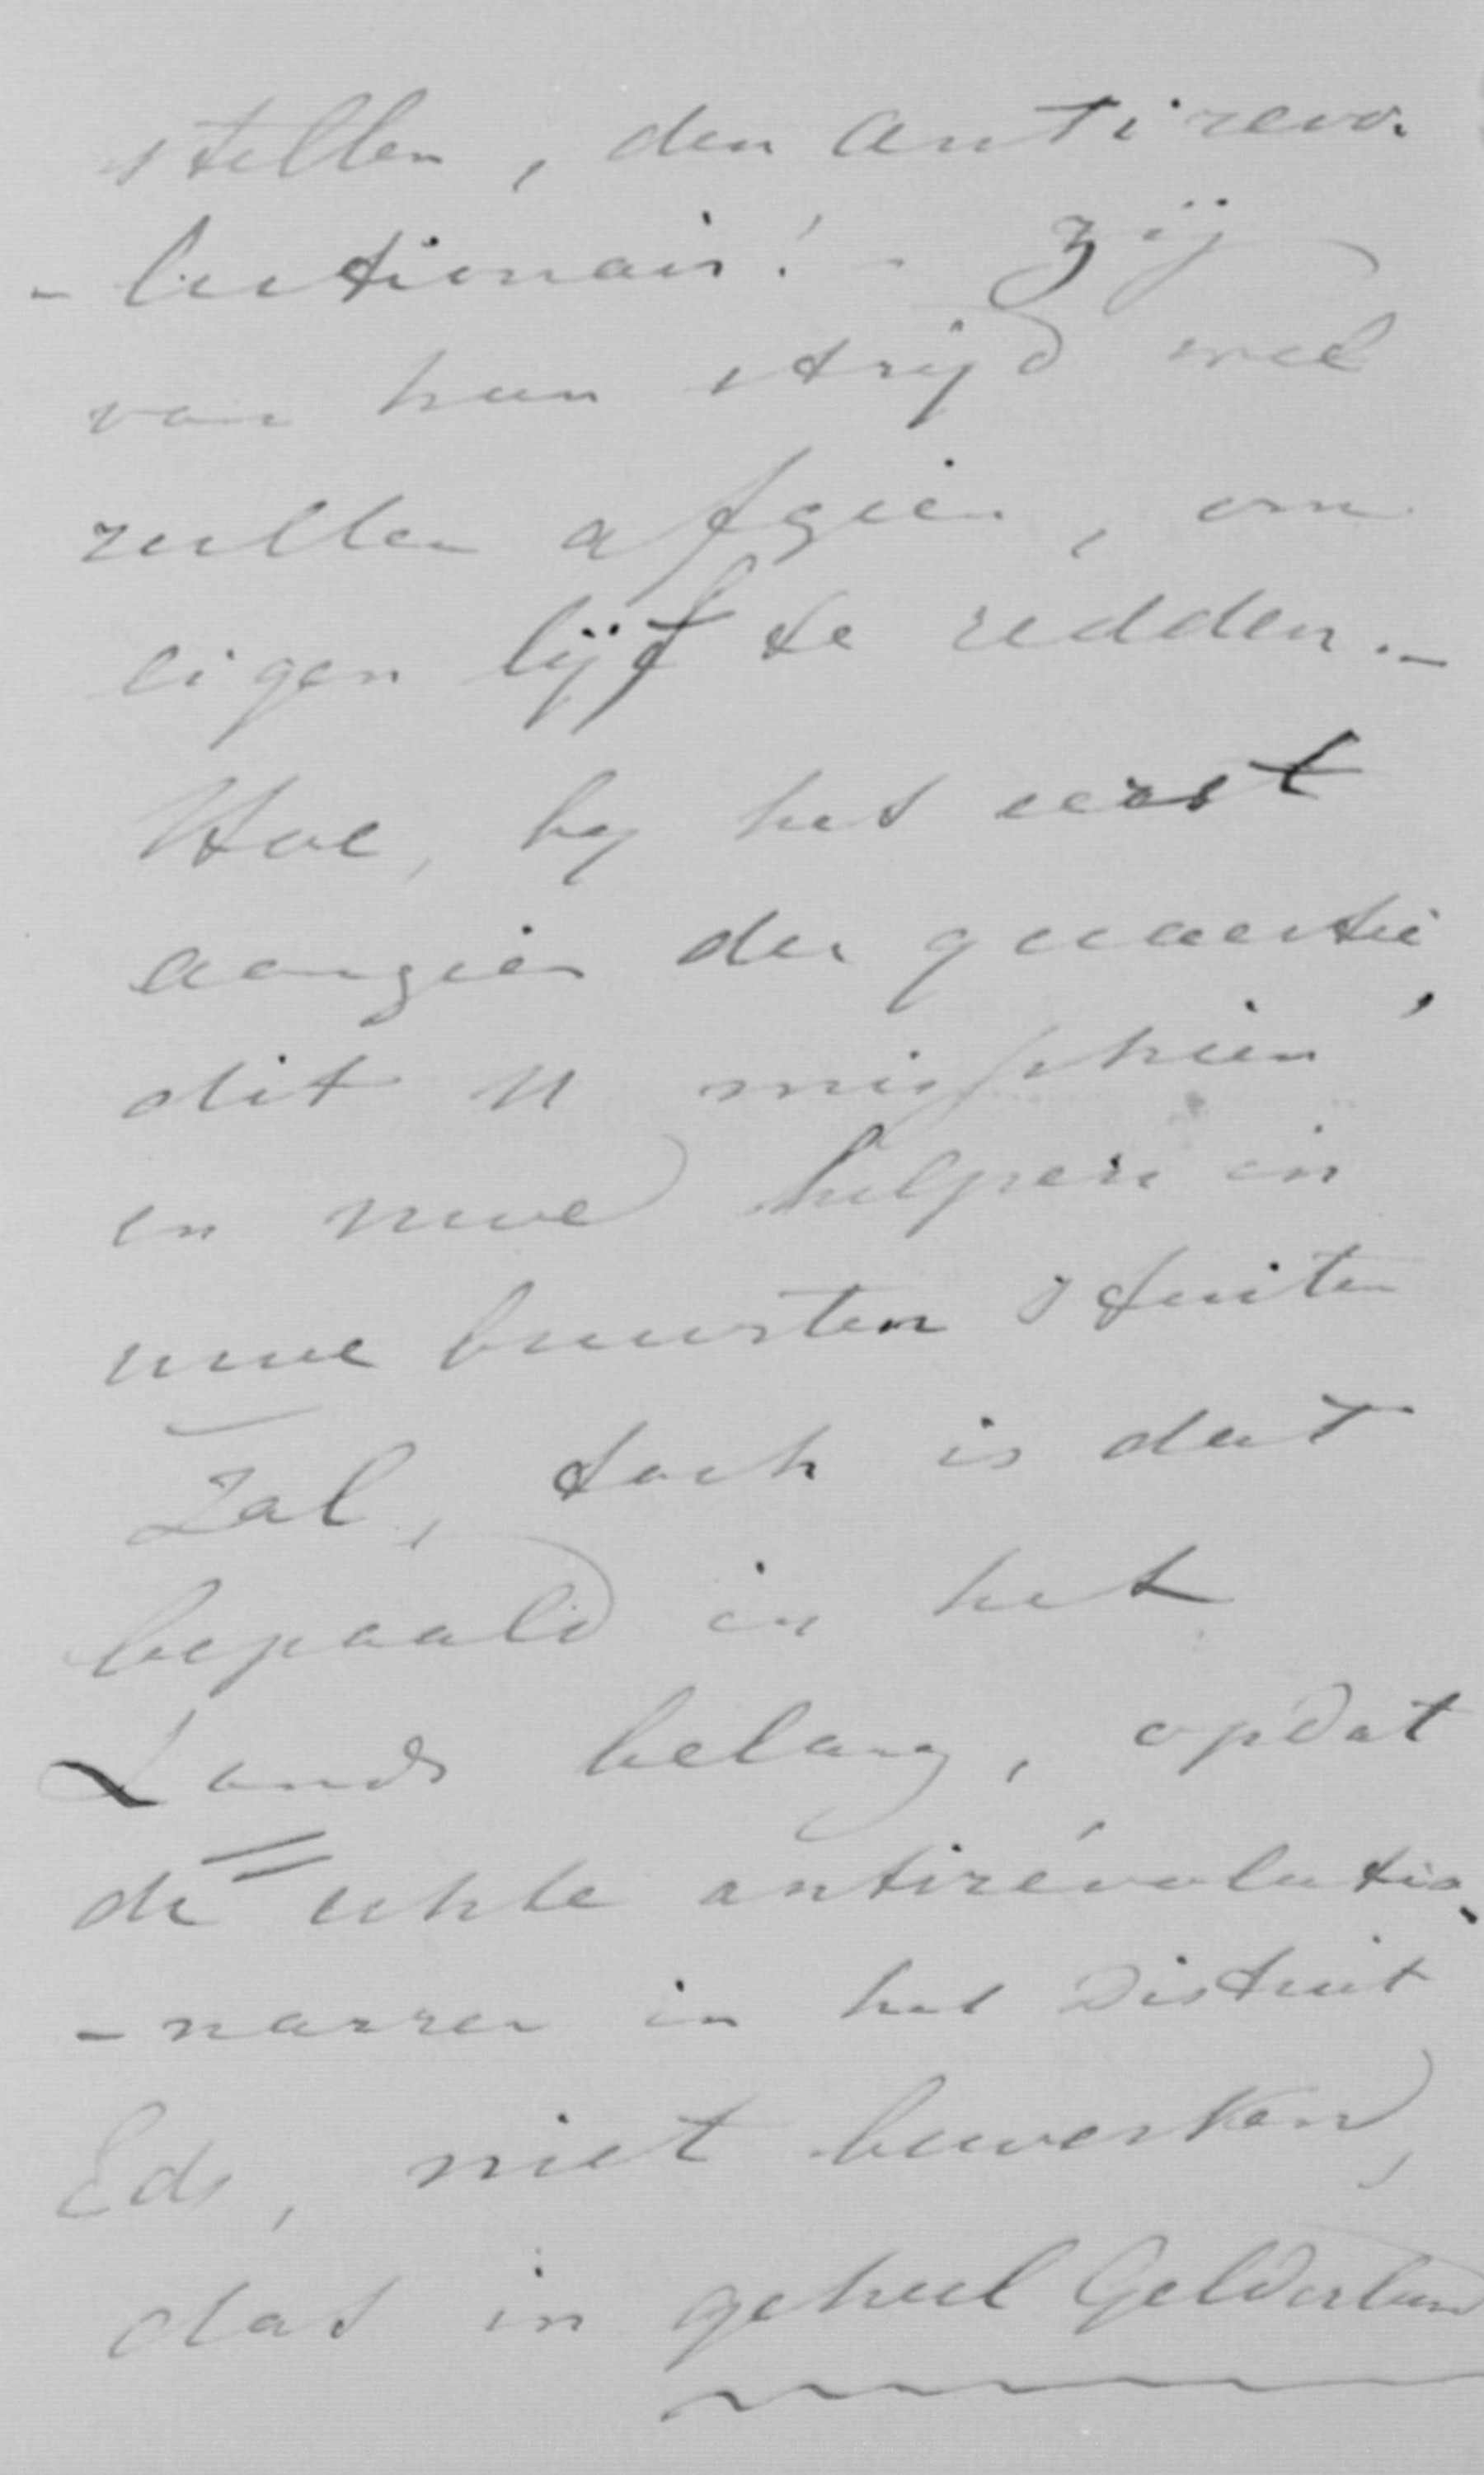 stellen, den antirevo-
-lutionair! - zij
van hun strijd wel
zullen afzien, om
eigen lijf te redden. -
Hoe, by het eerst
aanzien der quaestie,
dit U misschien
en uwe helpers in
uwe buurten stuiten
zal, toch is dat
bepaald in het
Lands belang, opdat
de echte antirévolutio-
-narren in het District
Ede, niet bewerken,
dat in geheel Gelderland